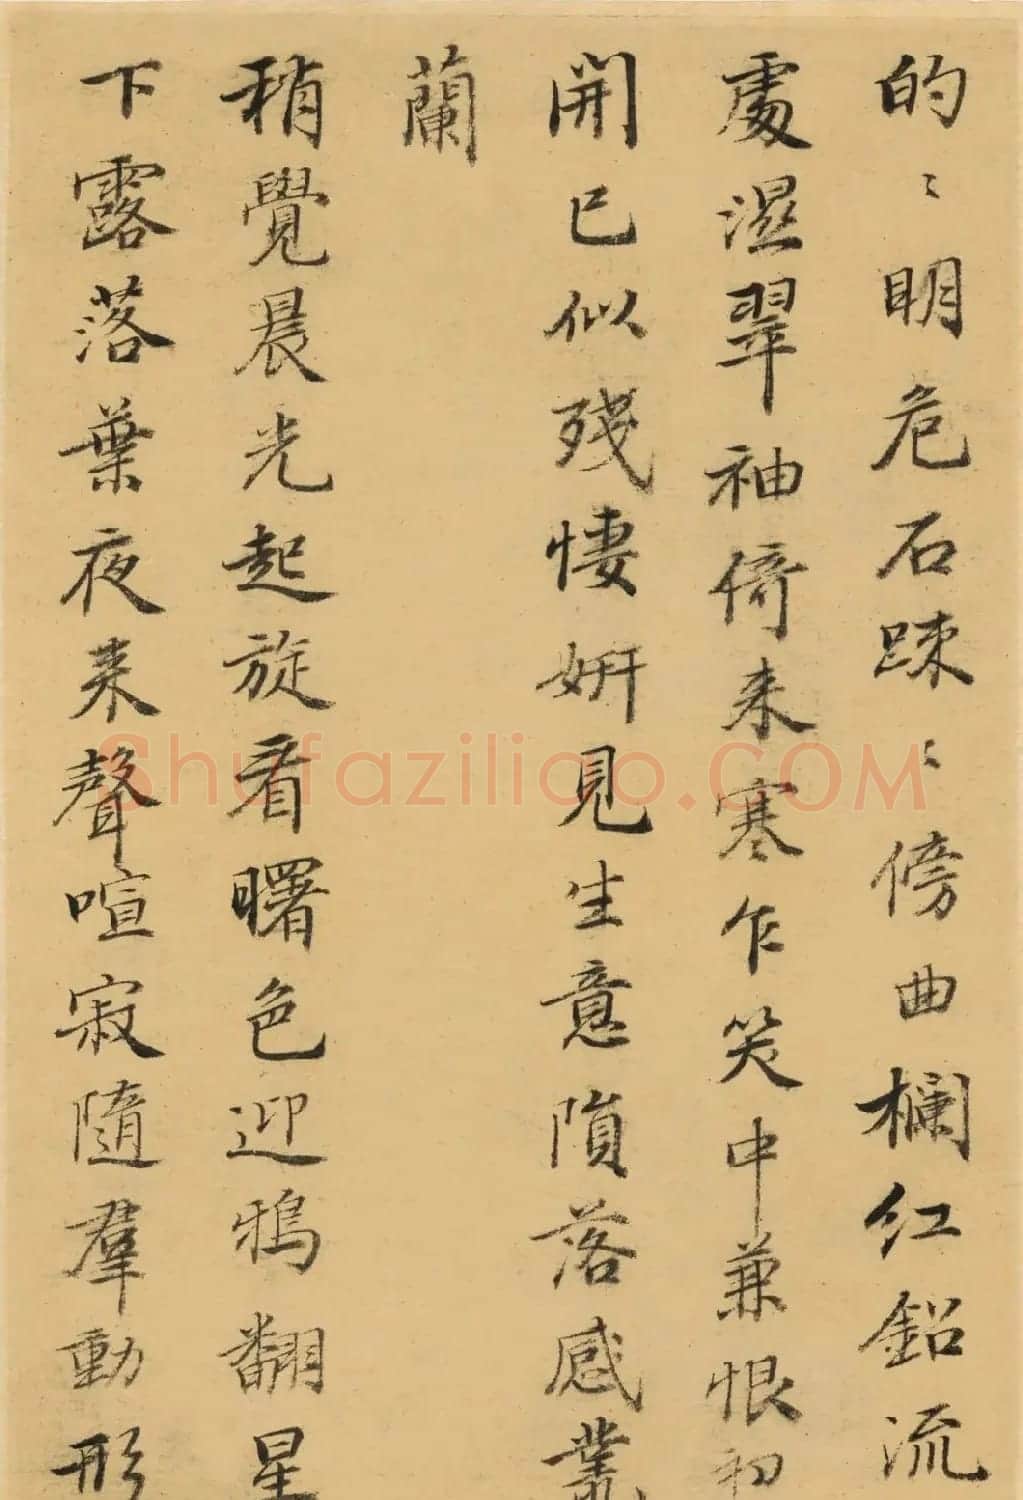 的〻明危石踈〻傍曲欄红鉛流
處濕翠袖倚来寒乍笑中兼恨初
開已似残悽妍見生意隕落感叢
蘭
稍覺晨光起旋看曙色迎鴉翻星
下露落葉夜来聲喧寂隨羣動形
Shufaziliao.COM